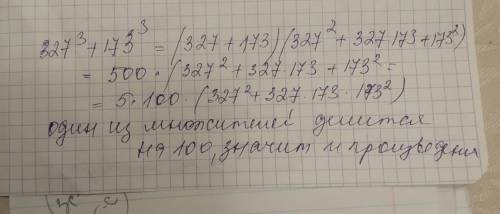 327³ + 173³ = (327 + 173) (327² + 327·173 + 173²)
= 500 · (327² + 327·173 + 173² =
= 5·100 · (327² + 327·173·173²)
один из множителей делится
на 100, значит и произведения